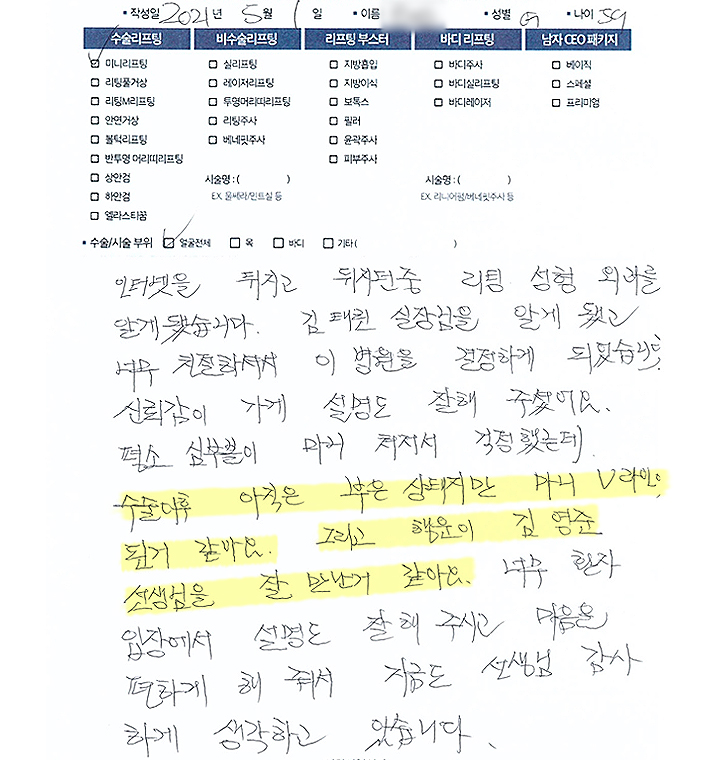 ▪ 작성일 2021년 5월 1일 ▪ 이름 ▪ 성별 여 ▪ 나이 59
수술리프팅 비수술리프팅 리프팅 부스터 바디 리프팅 남자 CEO 패키지
미니리프팅 실리프팅 지방흡입 바디주사 베이직
리팅풀거상 레이저리프팅 지방이식 바디실리프팅 스페셜
리팅M리프팅 투명머리띠리프팅 보톡스 바디레이저 프리미엄
안면거상 리팅주사 필러
볼턱리프팅 베네핏주사 윤곽주사
반투명 머리띠리프팅 피부주사
상안검 시술명 : ( ) 시술명 : ( )
하안검 EX. 울쎄라/민트실 등 EX. 리니어펌/베네핏주사 등
엘라스티꿈
▪ 수술/시술 부위 얼굴전체 목 바디 기타 ( )
인터넷을 뒤지고 뒤지던중 리팅 성형 외과를
알게 됐습니다. 김태린 실장님을 알게 됐고
너무 친절하셔서 이 병원을 결정하게 되었습니다.
신뢰감이 가게 설명도 잘해 주셨어요.
평소 심부볼이 마니 쳐져서 걱정했는데
수술이후 아직은 부은 상태지만 마니 V라인
된거 같아요. 그리고 행운이 김영준
선생님을 잘 만난거 같아요. 너무 환자
입장에서 설명도 잘해 주시고 마음을
편하게 해 줘서 지금도 선생님 감사
하게 생각하고 있습니다.